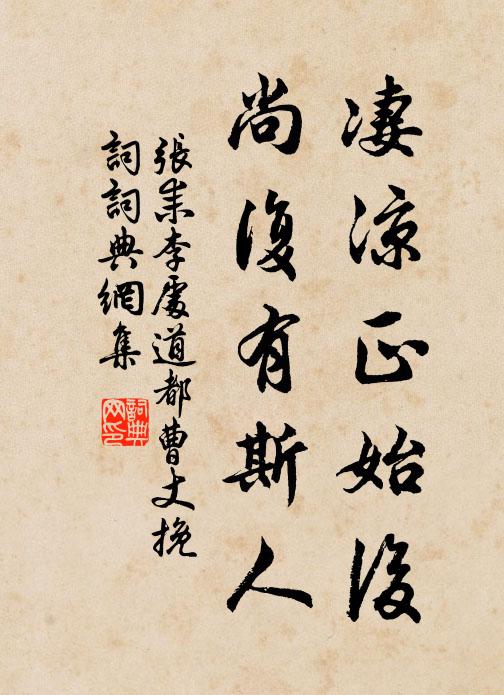 凄凉正始後
尚復有斯人
張耒李處道都曹丈挽
詞詞典網集
詞典网印